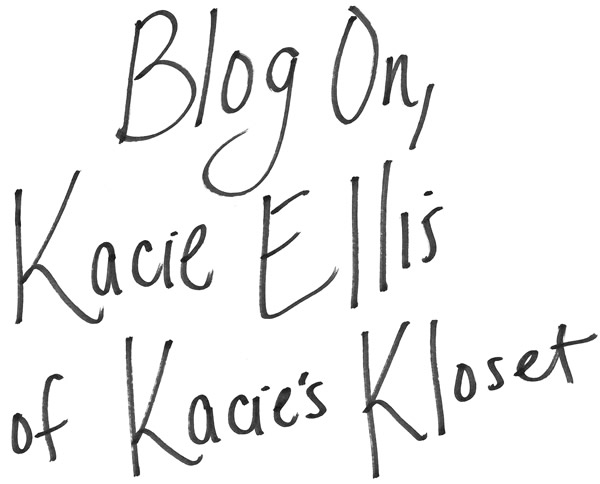 Blog On,
Kacie Ellis
of Kacie's Kloset